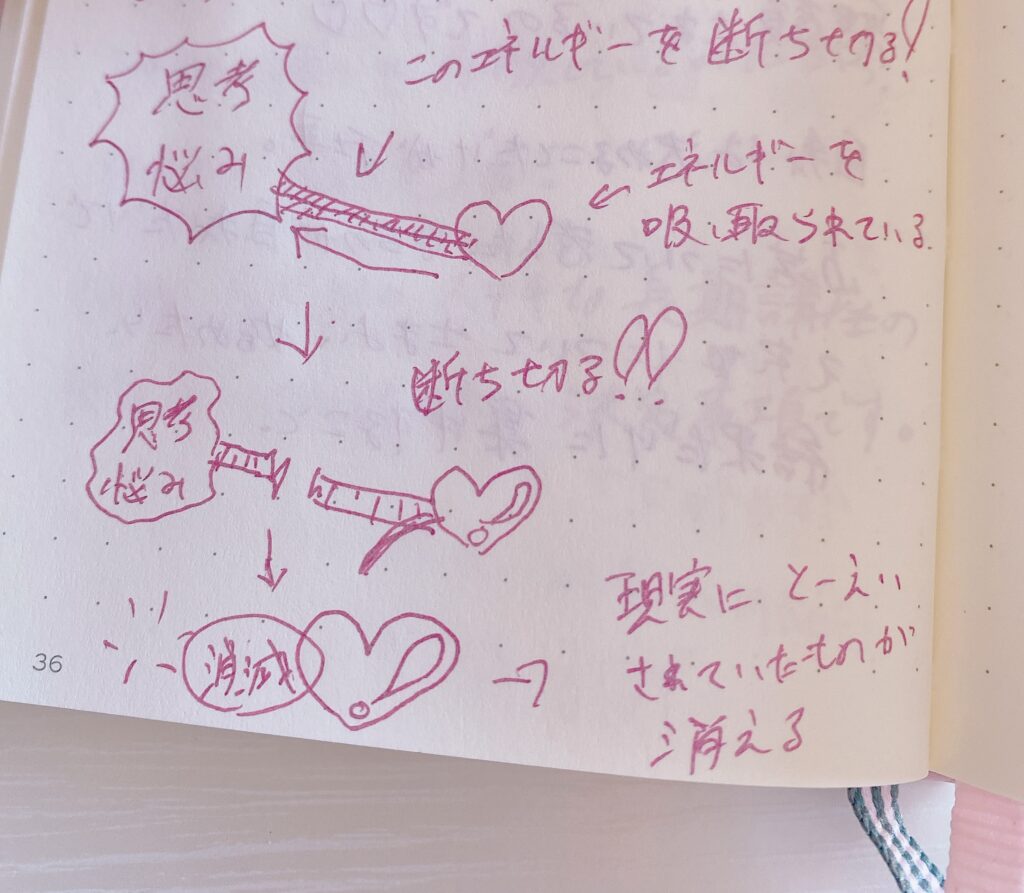 このエネルギーを断ち切る!
思考
悩み
← エネルギーを
吸い取られている
↓
断ち切る!!
思考
悩み
↓
消滅
→
現実に とーえい
されていたものが
消える
36